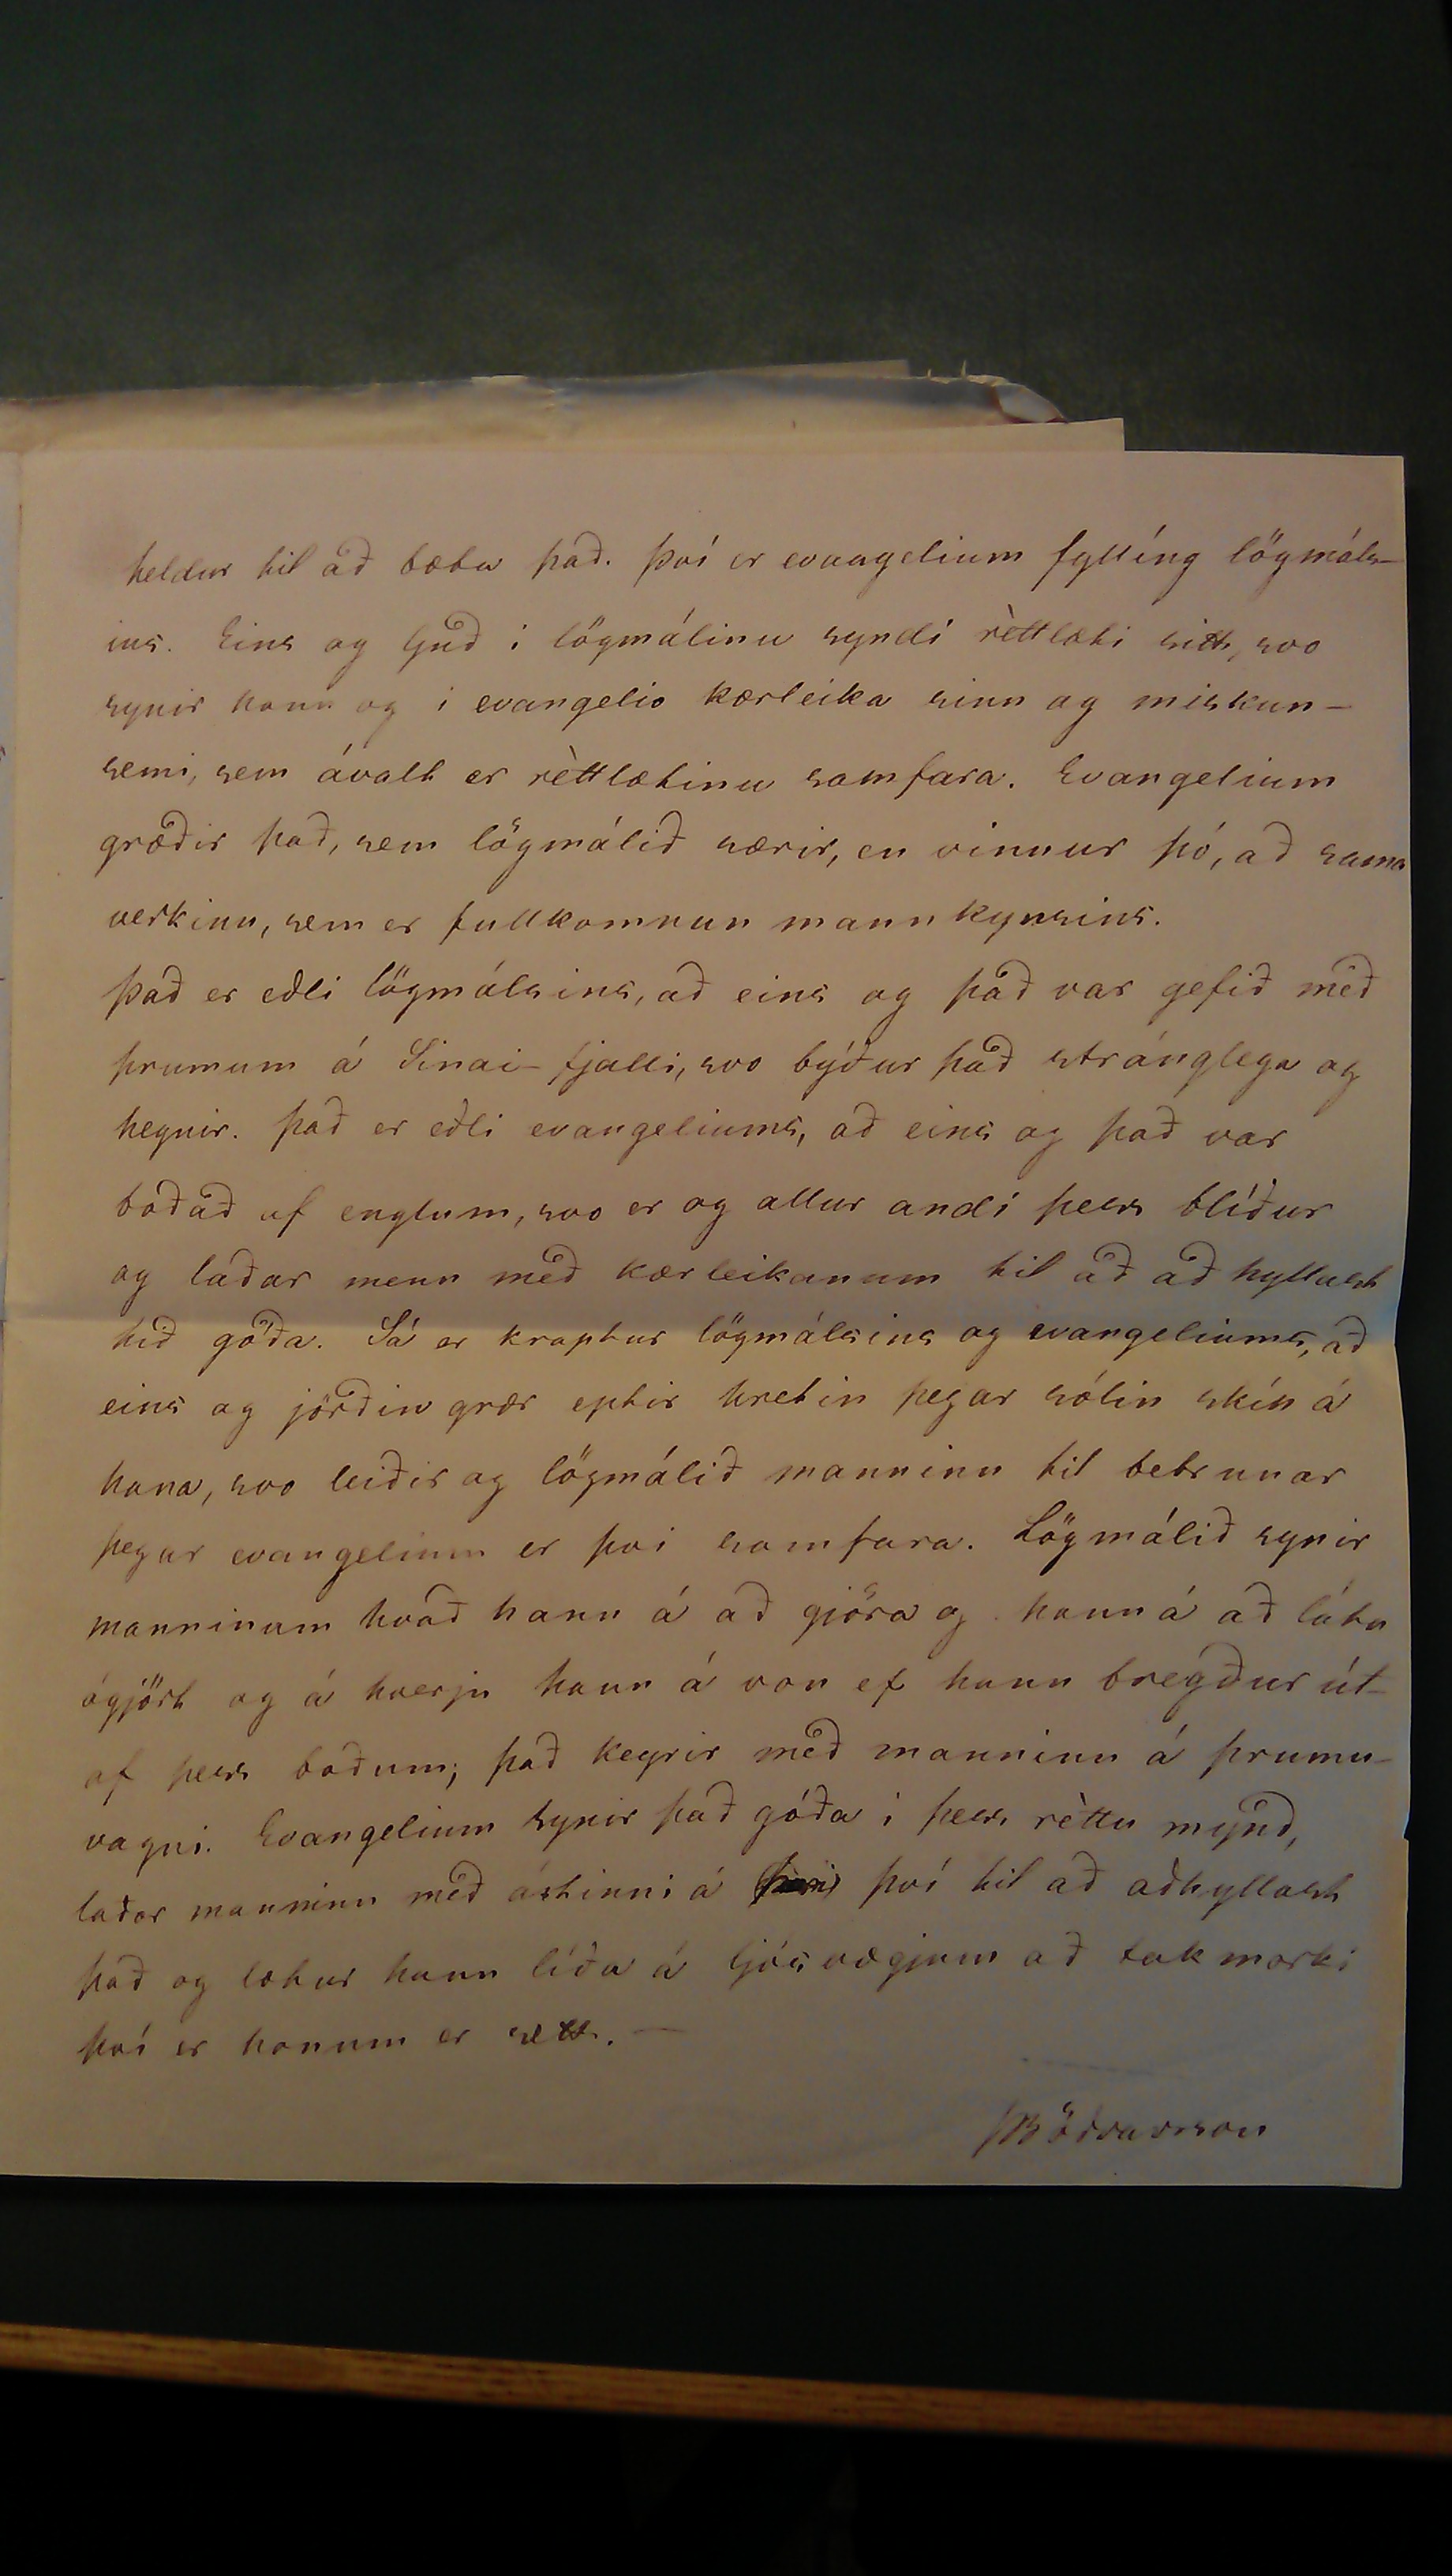 heldur til að bæta það. Því er evangelium fyllíng lögmáls-
ins. Eins og Guð i lögmálinu syndi rèttlæti sitt, svo
synir hann og i evangelio kærleika sinn og miskun-
semi, sem ávalt er rèttlætinu samfara. Evangelium
græðir það, sem lögmálið særir, en vinnur þó, að sama
verkinu, sem er fullkomnun mannkynsins.
Það er eðli lögmálsins, að eins og það var gefið með
þrumum á Sinai-fjalli, svo býður það stránglega og
hegnir. Það er eðli evangeliums, að eins og það var
boðað af englum, svo er og allur andi þess blíður
og laðar menn með kærleikanum til að að hyllast
hið góða. Sá er kraptur lögmálsins og evangeliums, að
eins og jörðin grær eptir hretin þegar sólin skín á
hana, svo leiðir og lögmálið manninn til betrunar
þegar evangelium er því samfara. Lögmálið synir
manninum hvað hann á að gjöra og hann á að láta
ógjört og á hverju hann á von ef hann bregður út-
af þess boðum; það keyrir með manninn á þrumu-
vagni. Evangelium synir það góða i þess rèttu mynd,
laðar manninn með ástinni á því til að aðhyllast
það og lætur hann líða á ljósvægjum að takmarki
því er honum er sett. —
Böðvarsson